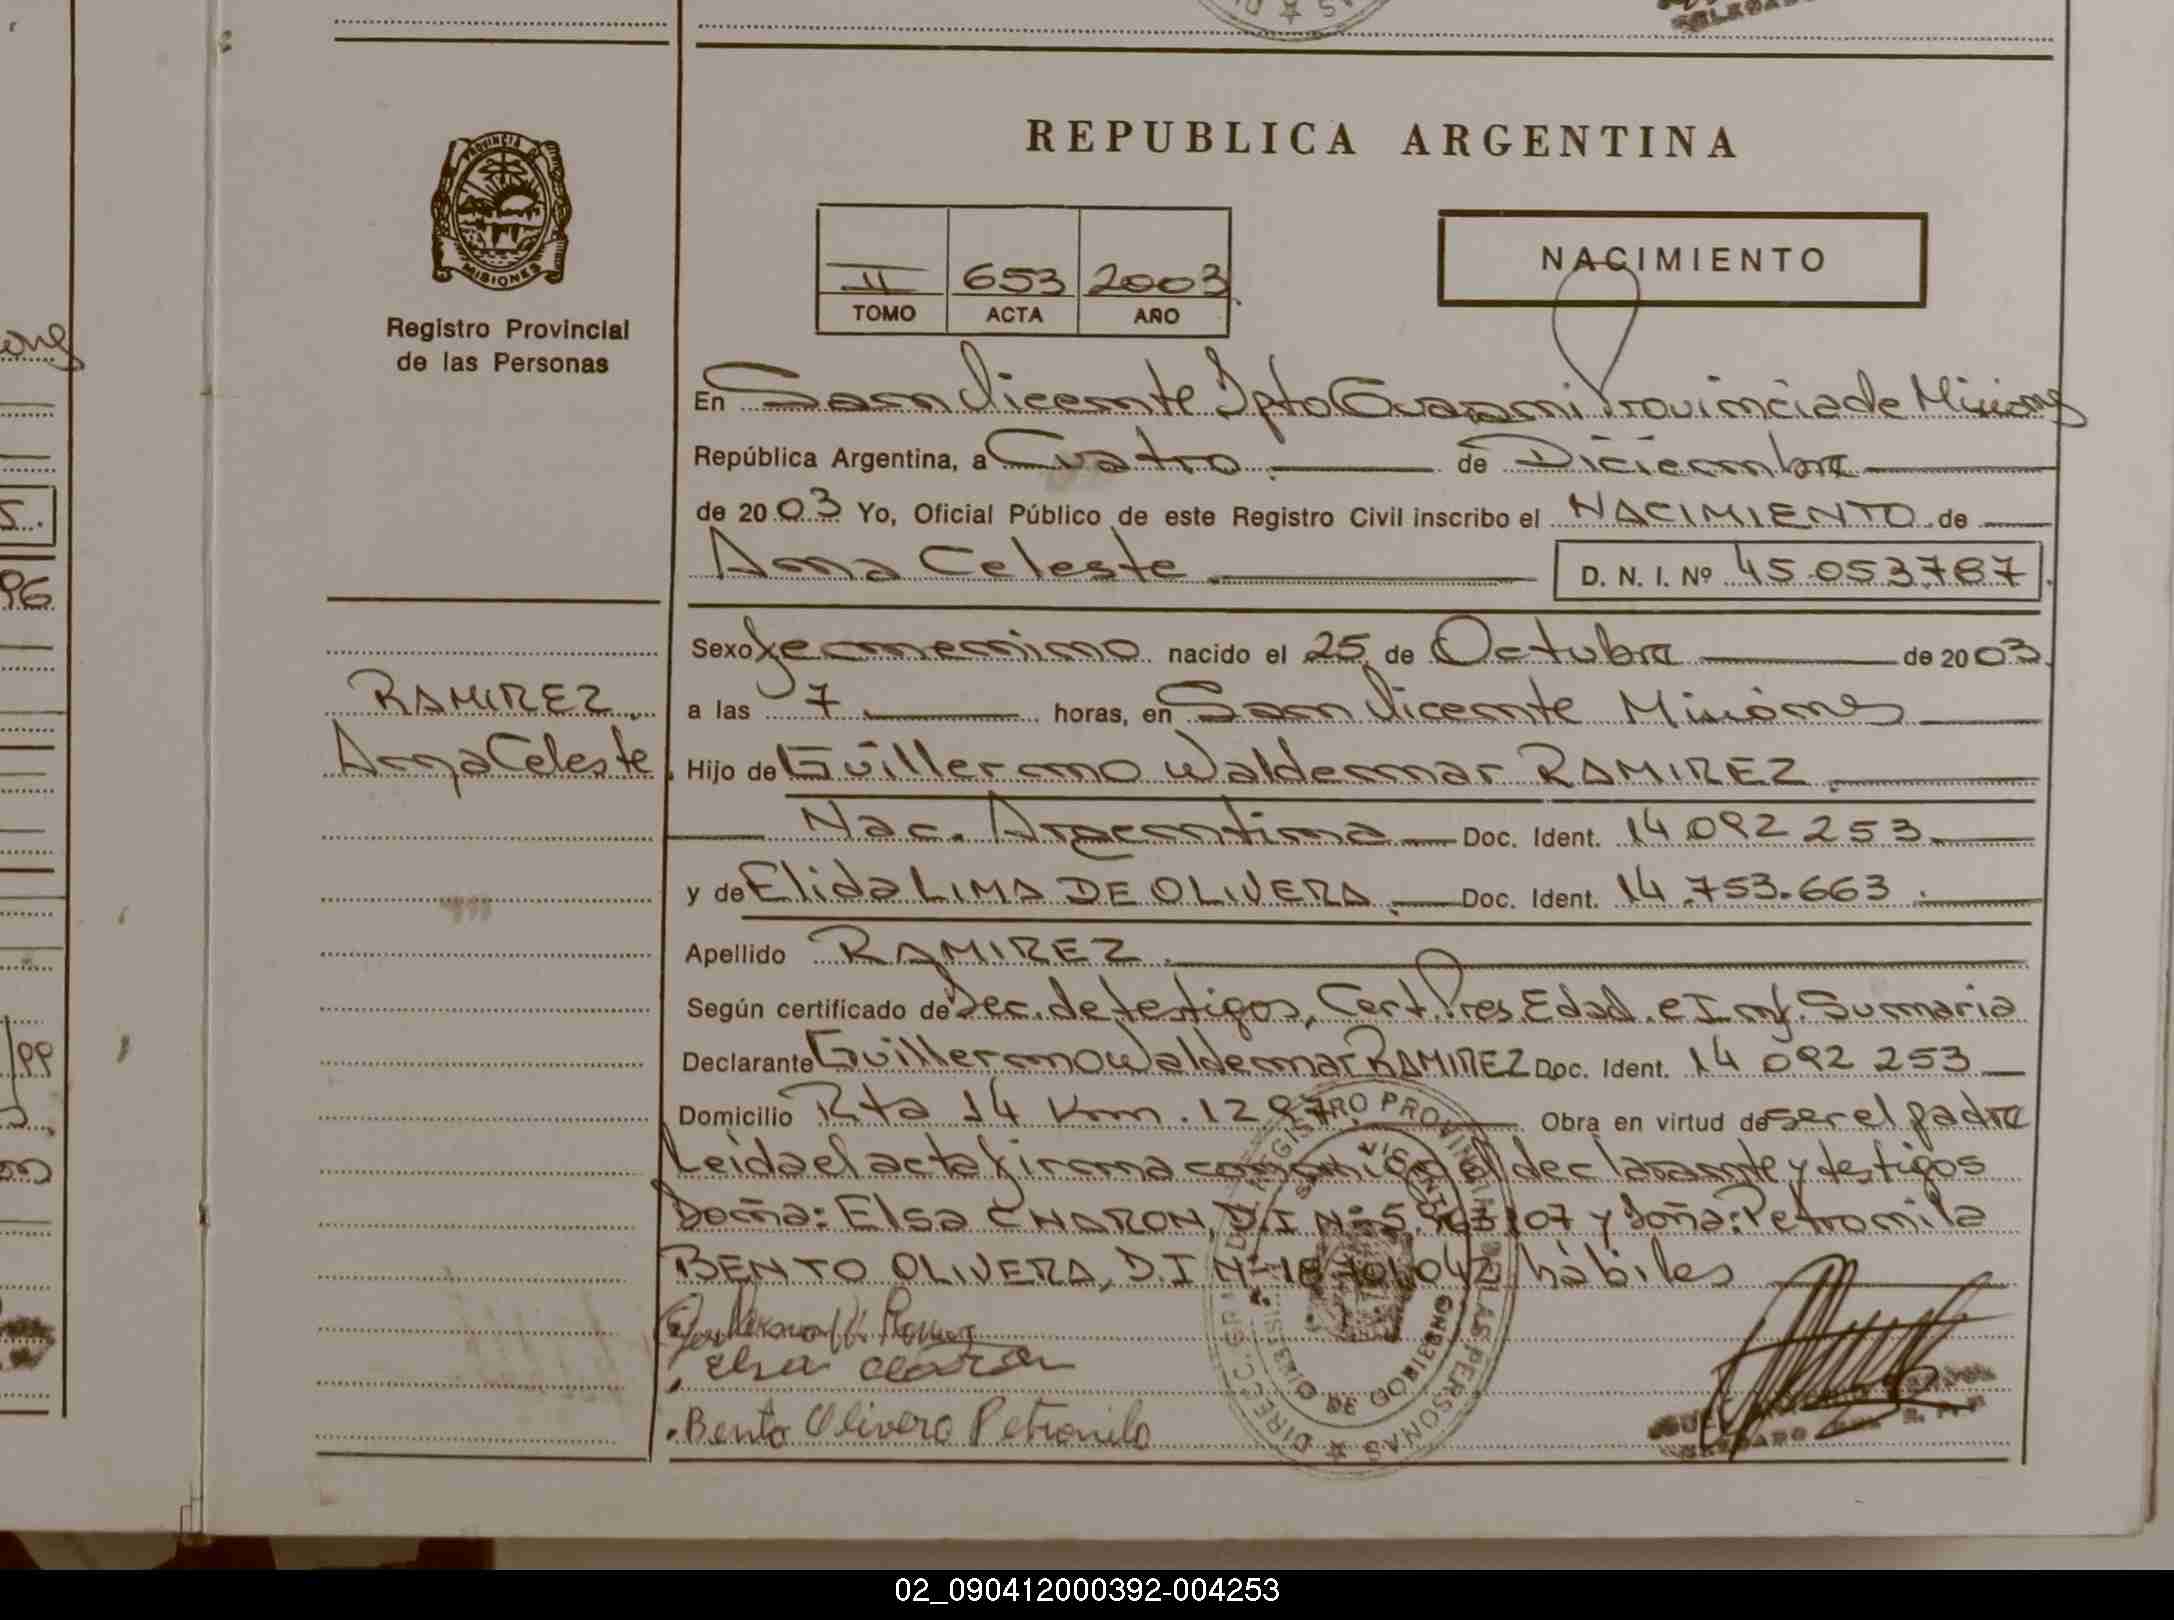 REPUBLICA ARGENTINA
PROVINCIA DE
MISIONES
Registro Provincial
de las Personas
II 653 2003
TOMO ACTA AÑO
NACIMIENTO
En San Vicente Dpto Guarani Provincia de Misiones
República Argentina, a Cuatro de Diciembre
de 2003 Yo, Oficial Público de este Registro Civil inscribo el NACIMIENTO de
Anna Celeste D. N. I. Nº 45.053.787
Sexo femenino nacido el 25 de Octubre de 2003
RAMIREZ
a las 7 horas, en San Vicente Misiones
Anna Celeste
Hijo de Guillermo Waldemar RAMIREZ
Nac. Argentina Doc. Ident. 14 092 253
y de Elida LIMA DE OLIVERA Doc. Ident. 14.753.663
Apellido RAMIREZ
Según certificado de Dec. de testigos, Cert. Pres. Edad e Inf. Sumaria
Declarante Guillermo Waldemar RAMIREZ Doc. Ident. 14 092 253
Domicilio Rta 14 Km. 1287 Obra en virtud de ser el padre
Leida el acta firma conmigo el declarante y testigos
Doña: Elsa CHARON, D.I Nº 5. 107 y Doña: Petronila
BENTO OLIVERA, D.I Nº 18 042 hábiles
Elsa
Bento Olivera Petronila
DIRECC. GRAL. DEL REGISTRO PROVINCIAL DE LAS PERSONAS
02_090412000392-004253